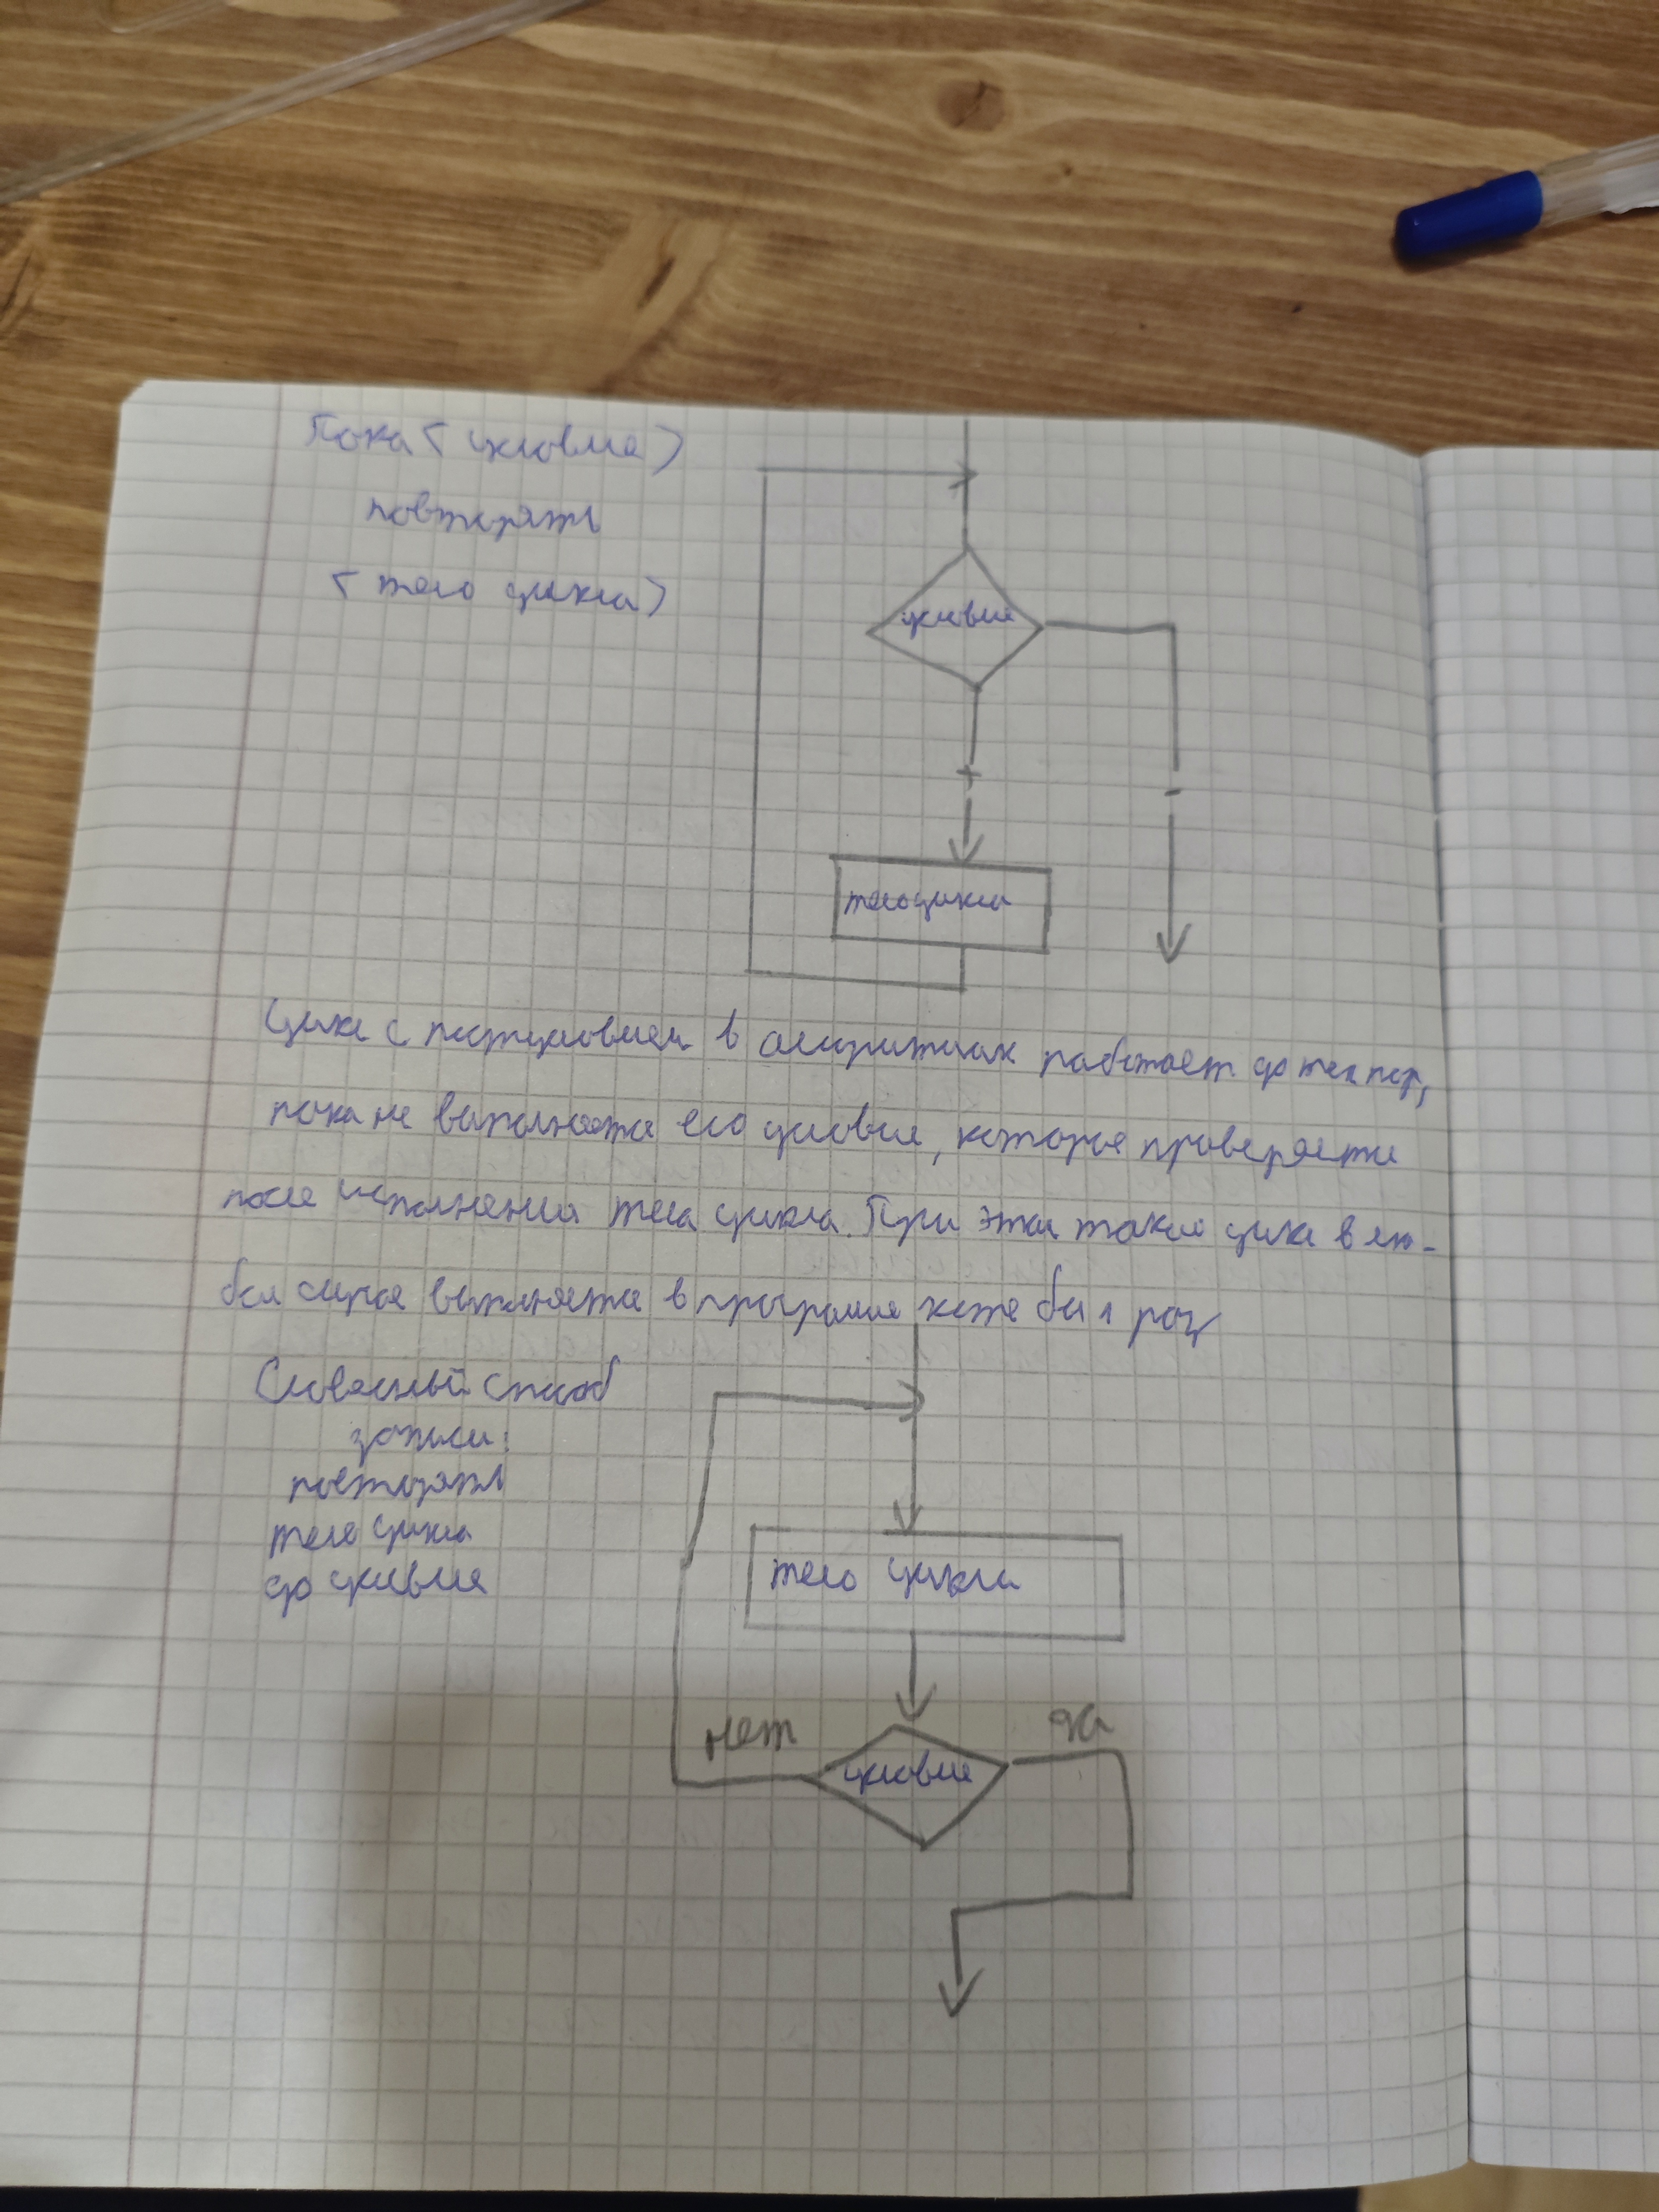 Пока < условие >
повторять
< тело цикла >
условие
+
-
тело цикла
Цикл с постусловием в алгоритмах работает до тех пор,
пока не выполняется его условие, которое проверяется
после исполнения тела цикла. При этом такой цикл в лю-
бом случае выполняется в программе хотя бы 1 раз
Словесный способ
записи:
повторять
тело цикла
до условие
тело цикла
нет
да
условие